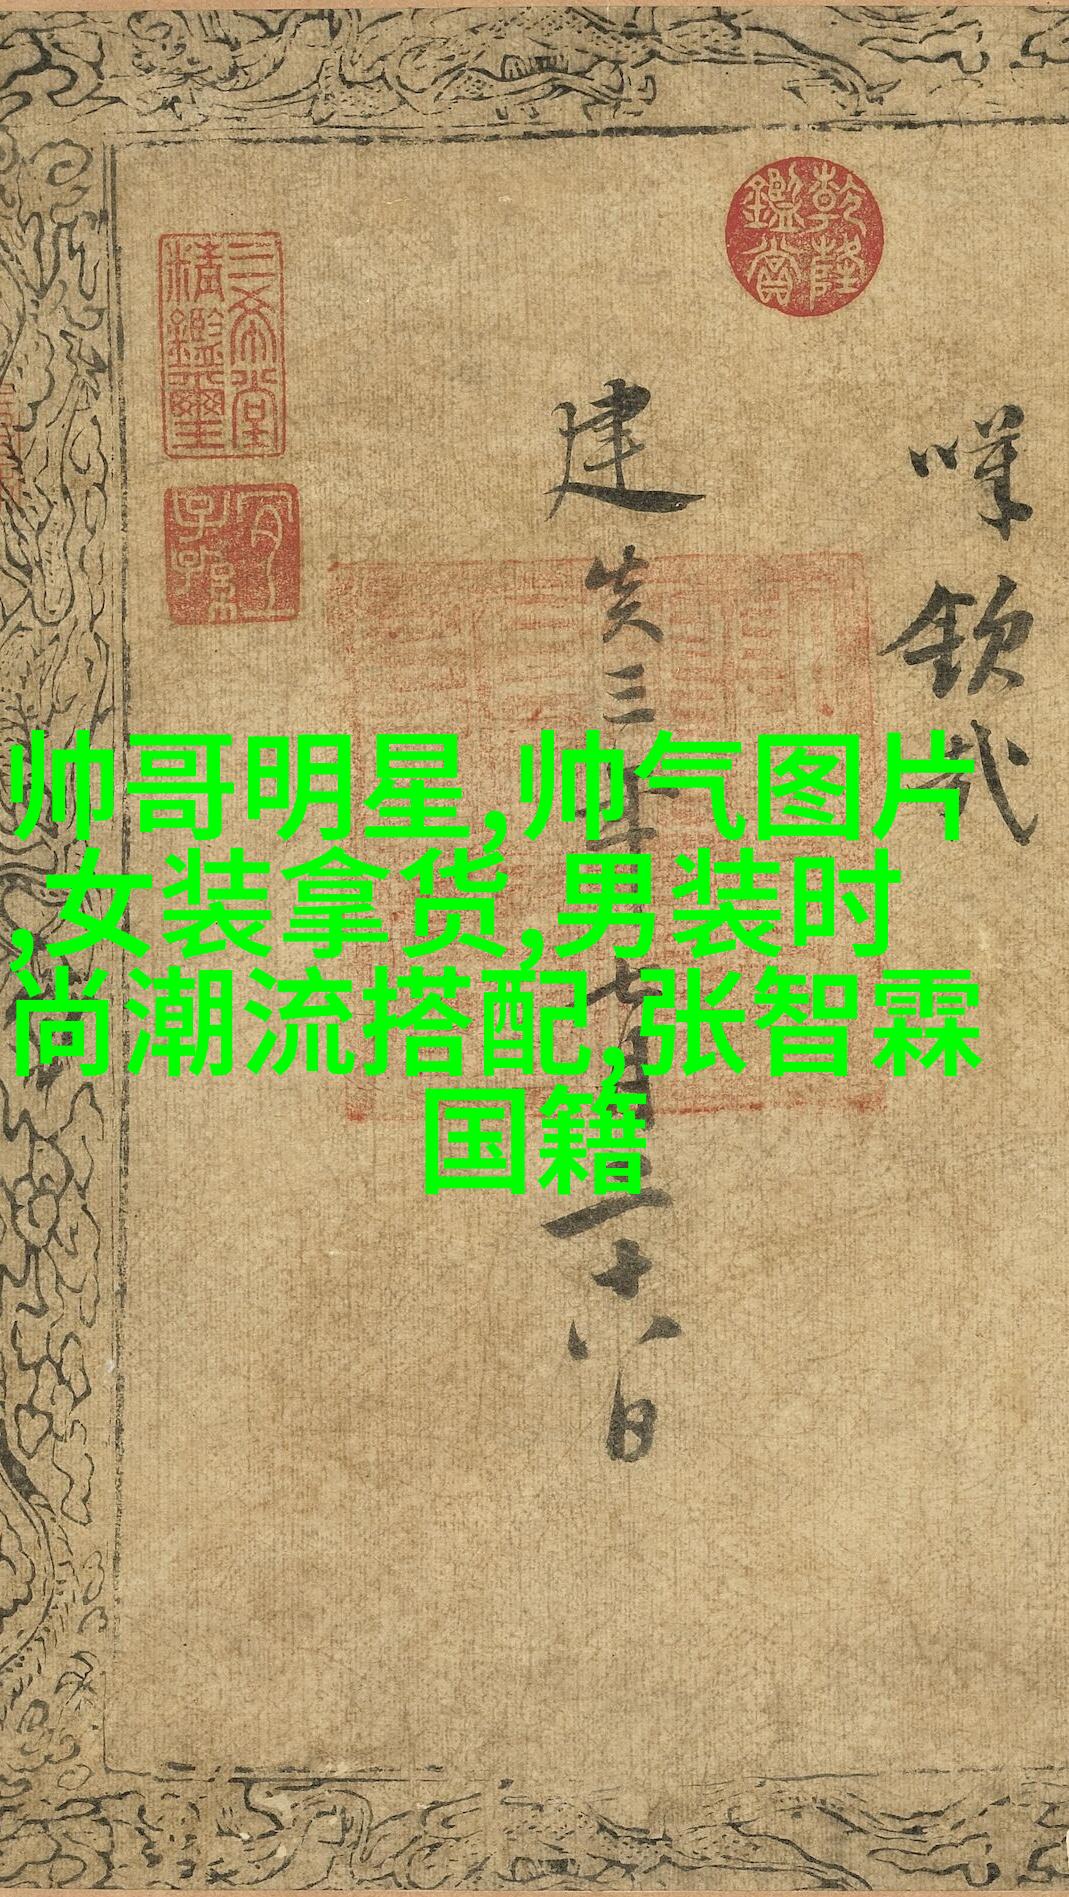 乾隆鑑賞
三希堂精鑑璽
宜子孫
嘆欽哉
建炎三年七月二十八日
帅哥明星,帅气图片
,女装拿货,男装时
尚潮流搭配,张智霖
国籍